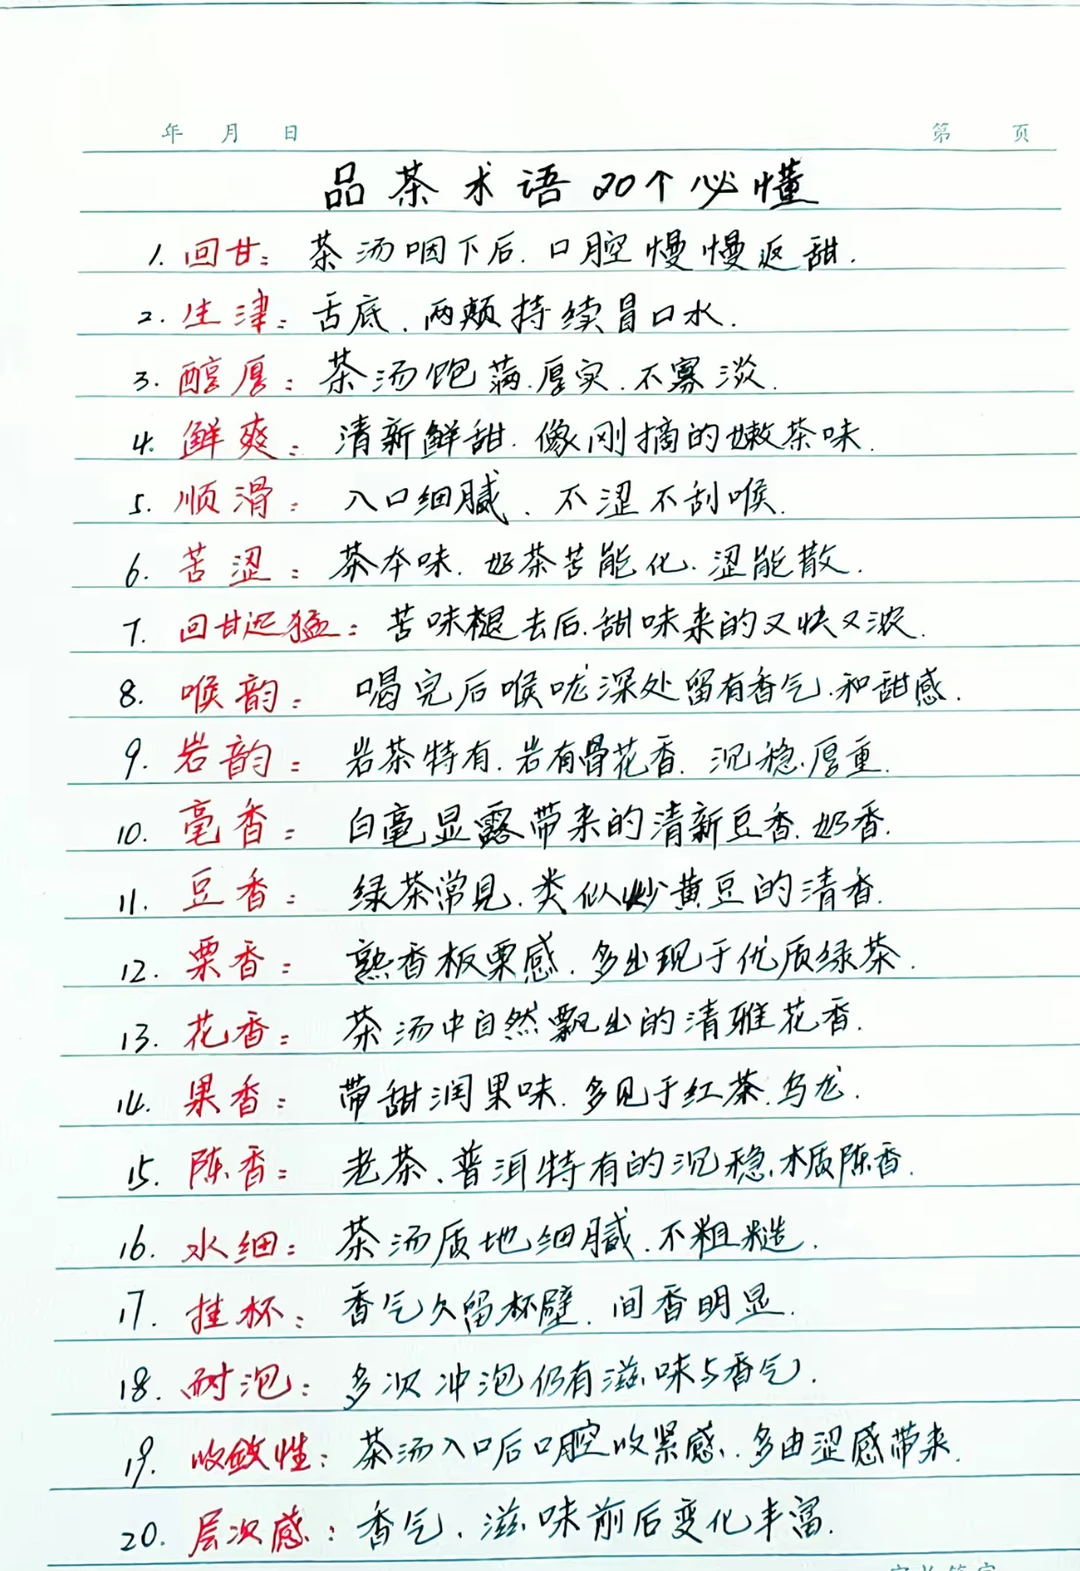 年 月 日 第 页
品茶术语20个必懂
1. 回甘: 茶汤咽下后.口腔慢慢返甜.
2. 生津: 舌底、两颊持续冒口水.
3. 醇厚: 茶汤饱满.厚实.不寡淡.
4. 鲜爽: 清新鲜甜.像刚摘的嫩茶味.
5. 顺滑: 入口细腻、不涩不刮喉.
6. 苦涩: 茶本味.好茶苦能化.涩能散.
7. 回甘迅猛: 苦味褪去后.甜味来的又快又浓.
8. 喉韵: 喝完后喉咙深处留有香气.和甜感.
9. 岩韵: 岩茶特有.岩有骨花香.沉稳.厚重.
10. 毫香: 白毫显露带来的清新豆香.奶香.
11. 豆香: 绿茶常见.类似炒黄豆的清香.
12. 栗香: 熟香板栗感.多出现于优质绿茶.
13. 花香: 茶汤中自然飘出的清雅花香.
14. 果香: 带甜润果味.多见于红茶.乌龙.
15. 陈香: 老茶、普洱特有的沉稳.木质陈香.
16. 水细: 茶汤质地细腻.不粗糙.
17. 挂杯: 香气久留杯壁.间香明显.
18. 耐泡: 多次冲泡仍有滋味与香气.
19. 收敛性: 茶汤入口后口腔收紧感.多由涩感带来.
20. 层次感: 香气、滋味前后变化丰富.